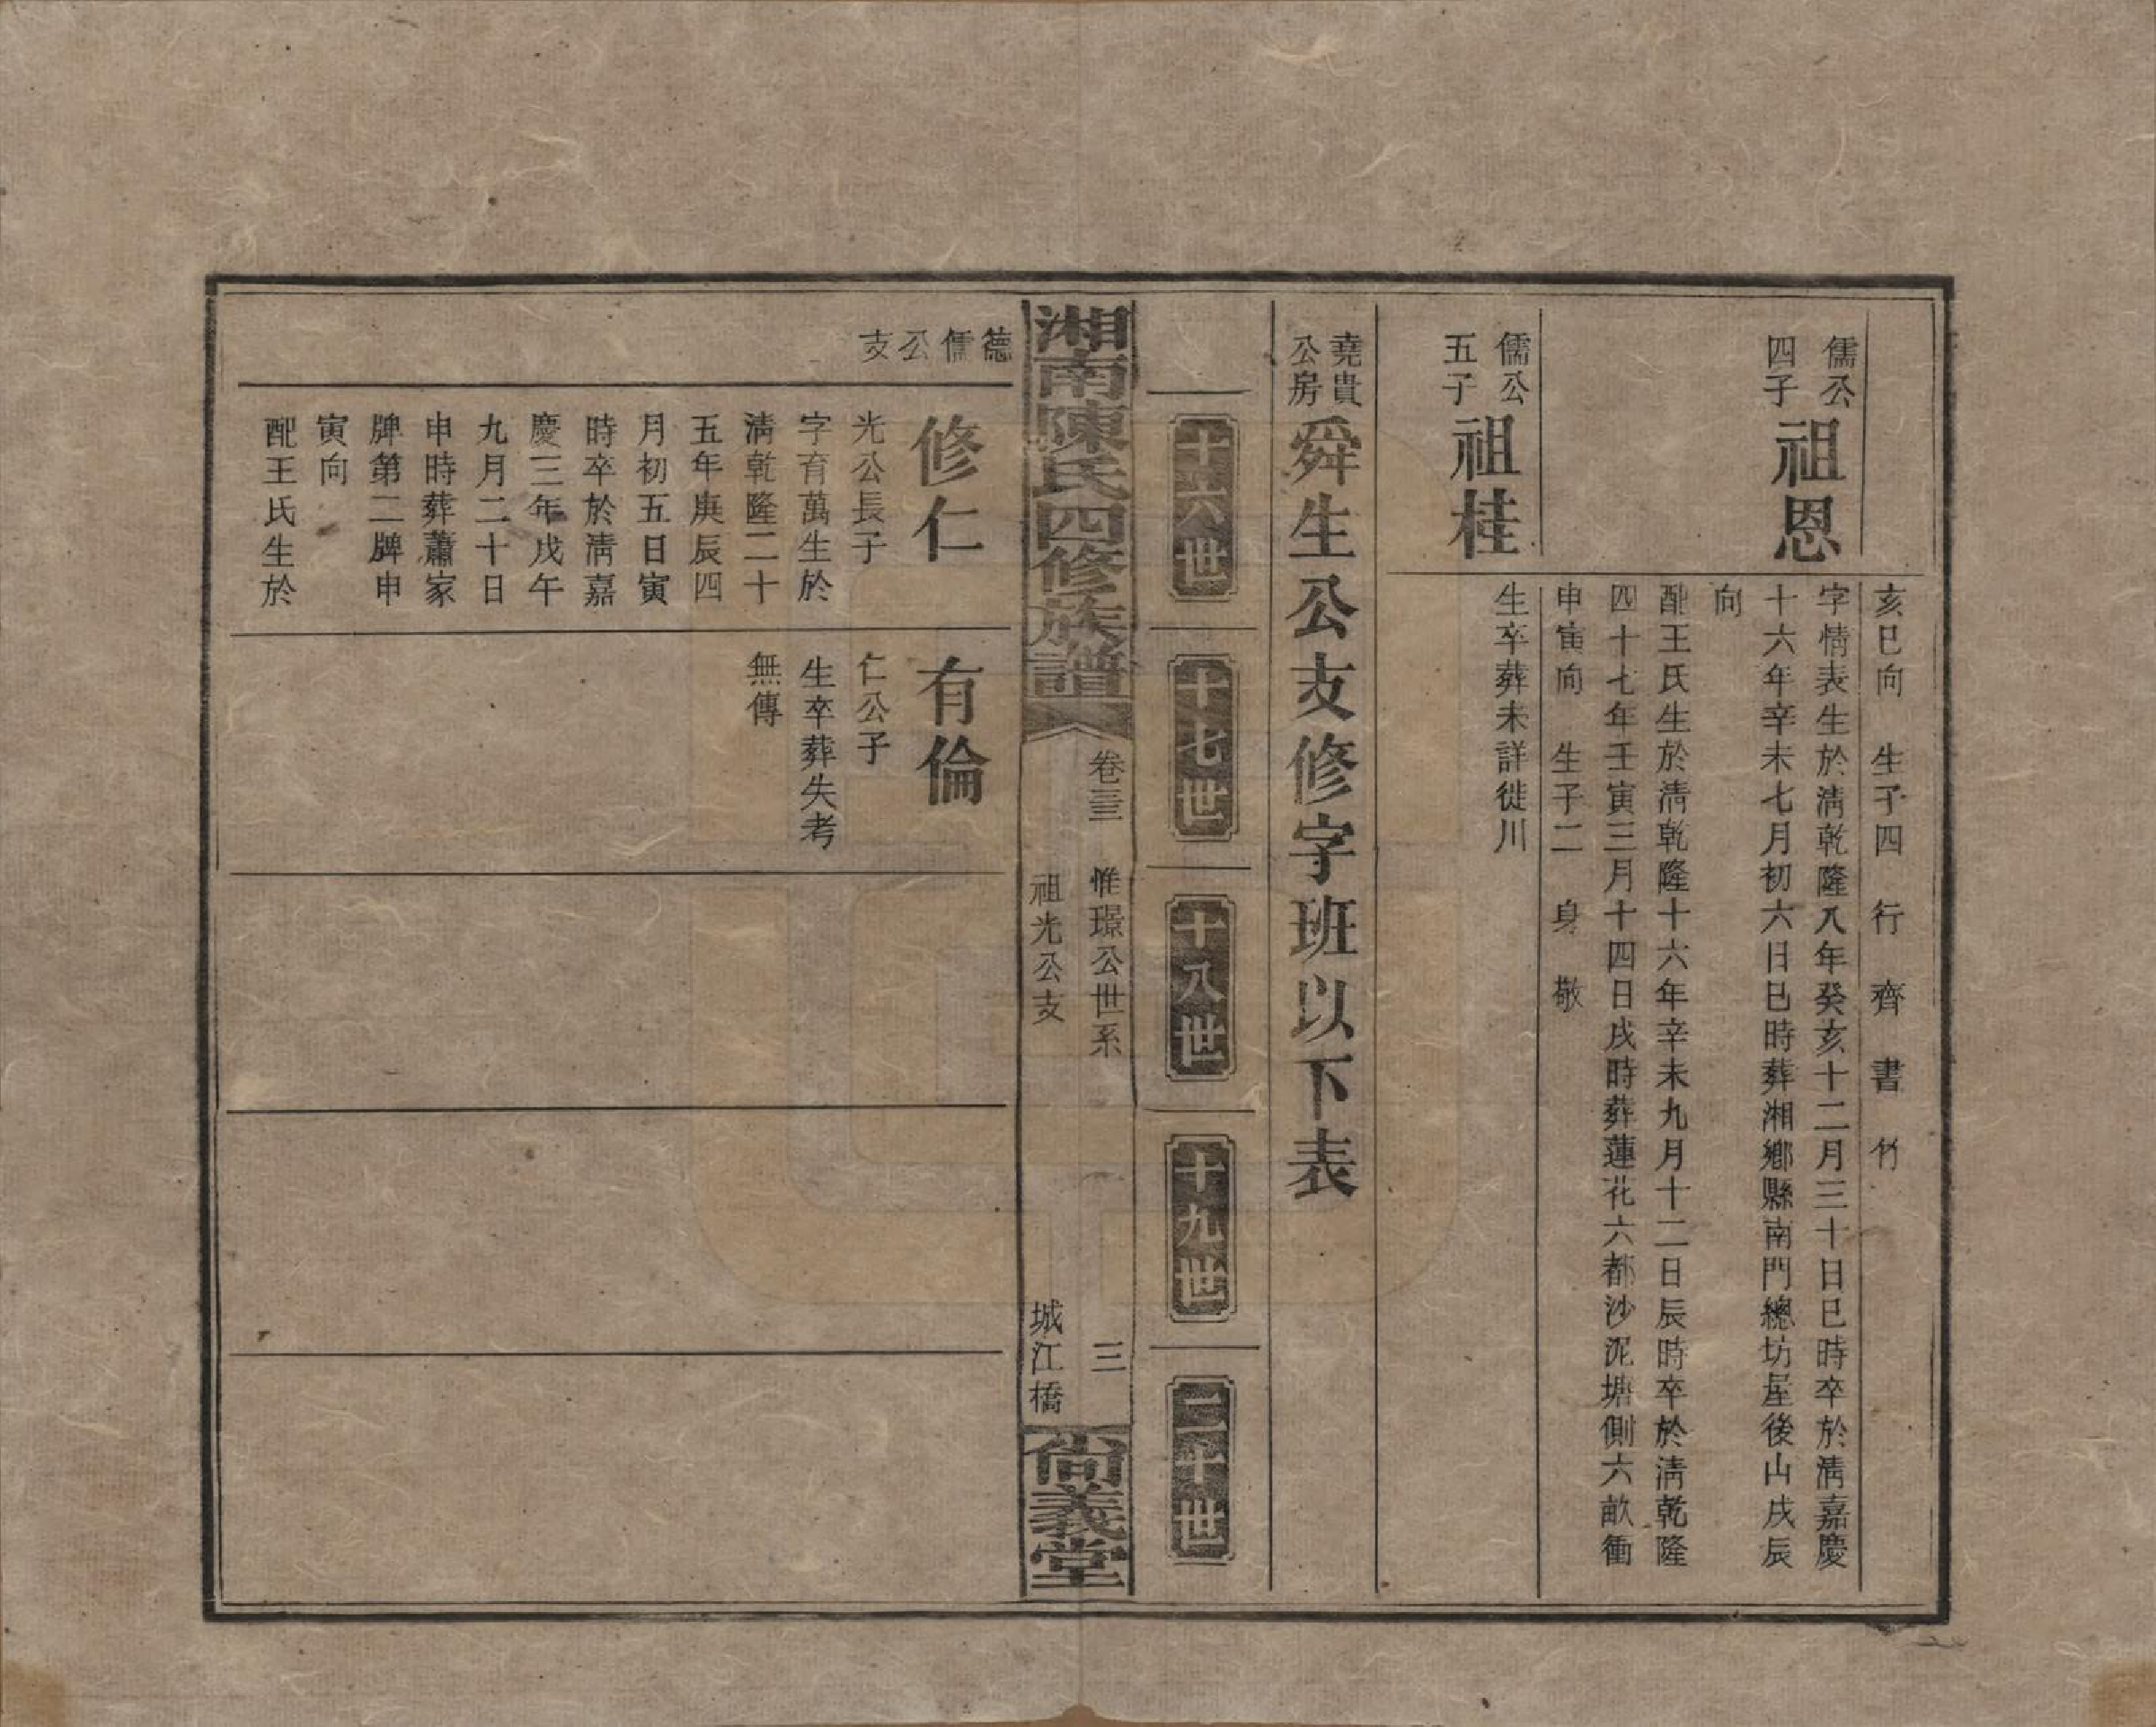 亥巳向　生子四　行　齊　書　竹
儒公四子
祖恩
字情表生於清乾隆八年癸亥十二月三十日巳時卒於清嘉慶
十六年辛未七月初六日巳時葬湘鄉縣南門總坊屋後山戌辰
向
配王氏生於清乾隆十六年辛未九月十二日辰時卒於清乾隆
四十七年壬寅三月十四日戌時葬蓮花六都沙泥塘側六畝衝
申寅向　生子二　身　敬
儒公五子
祖桂
生卒葬未詳徙川
堯貴公房
舜生公支修字班以下表
十六世
十七世
十八世
十九世
二十世
湘南陳氏四修族譜
卷三　惟璟公世系　三
祖光公支　城江橋
尚義堂
德儒公支
修仁
光公長子
字育萬生於
清乾隆二十
五年庚辰四
月初五日寅
時卒於清嘉
慶三年戊午
九月二十日
申時葬蕭家
牌第二牌申
寅向
配王氏生於
有倫
仁公子
生卒葬失考
無傳